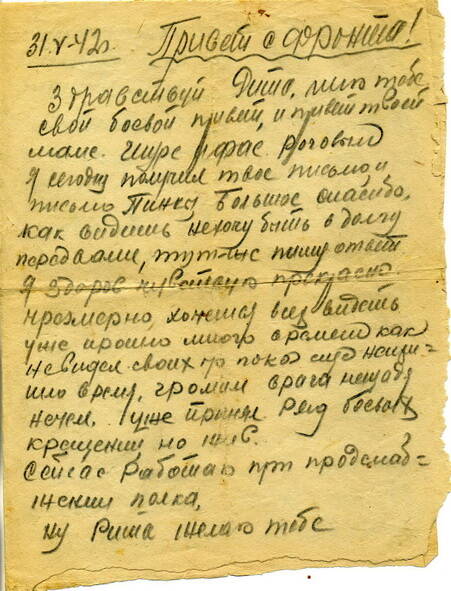 31.V-42г. Привет с фронта!
Здравствуй Рита, шлю тебе
свой боевой привет, и привет твоей
маме. Шуре и
Я сегодня получил твое письмо и
письмо Большое спасибо,
как видишь не хочу быть в долгу
перед вами, тут-же пишу ответ
Я здоров чувствую прекрасно.
Чрезмерно, хочется всех видеть
уже прошло много времени как
не видел своих но пока еще не при-
шло время, громим врага
уже принял ряд боевых
крещений, но жив.
Сейчас работаю при продснаб-
жении полка,
Ну Рита желаю тебе